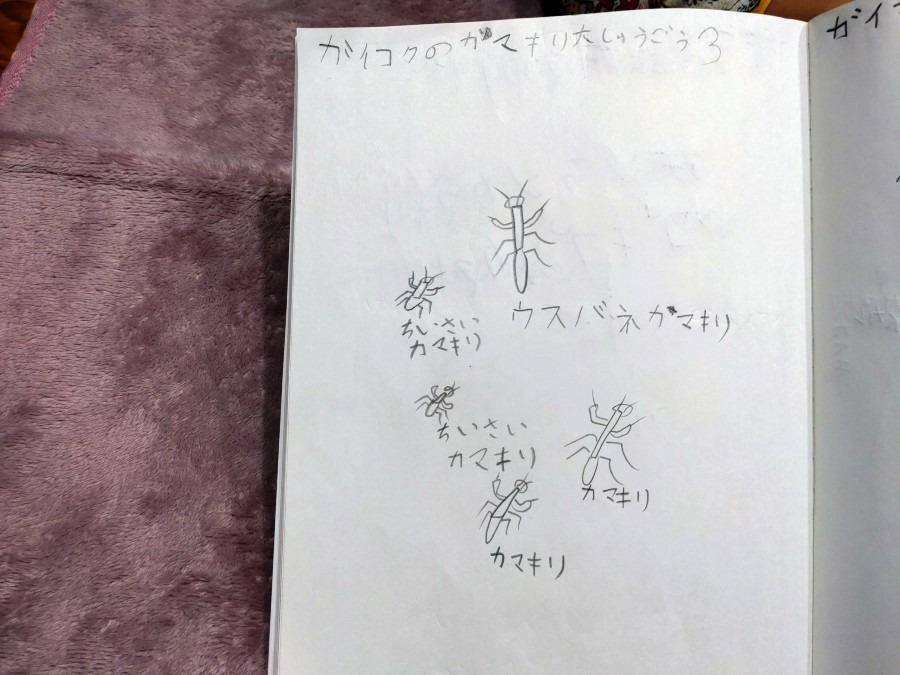 ガイコクのカマキリ大しゅうごう3
ウスバネカマキリ
ちいさい
カマキリ
ちいさい
カマキリ
カマキリ
カマキリ
ガイ